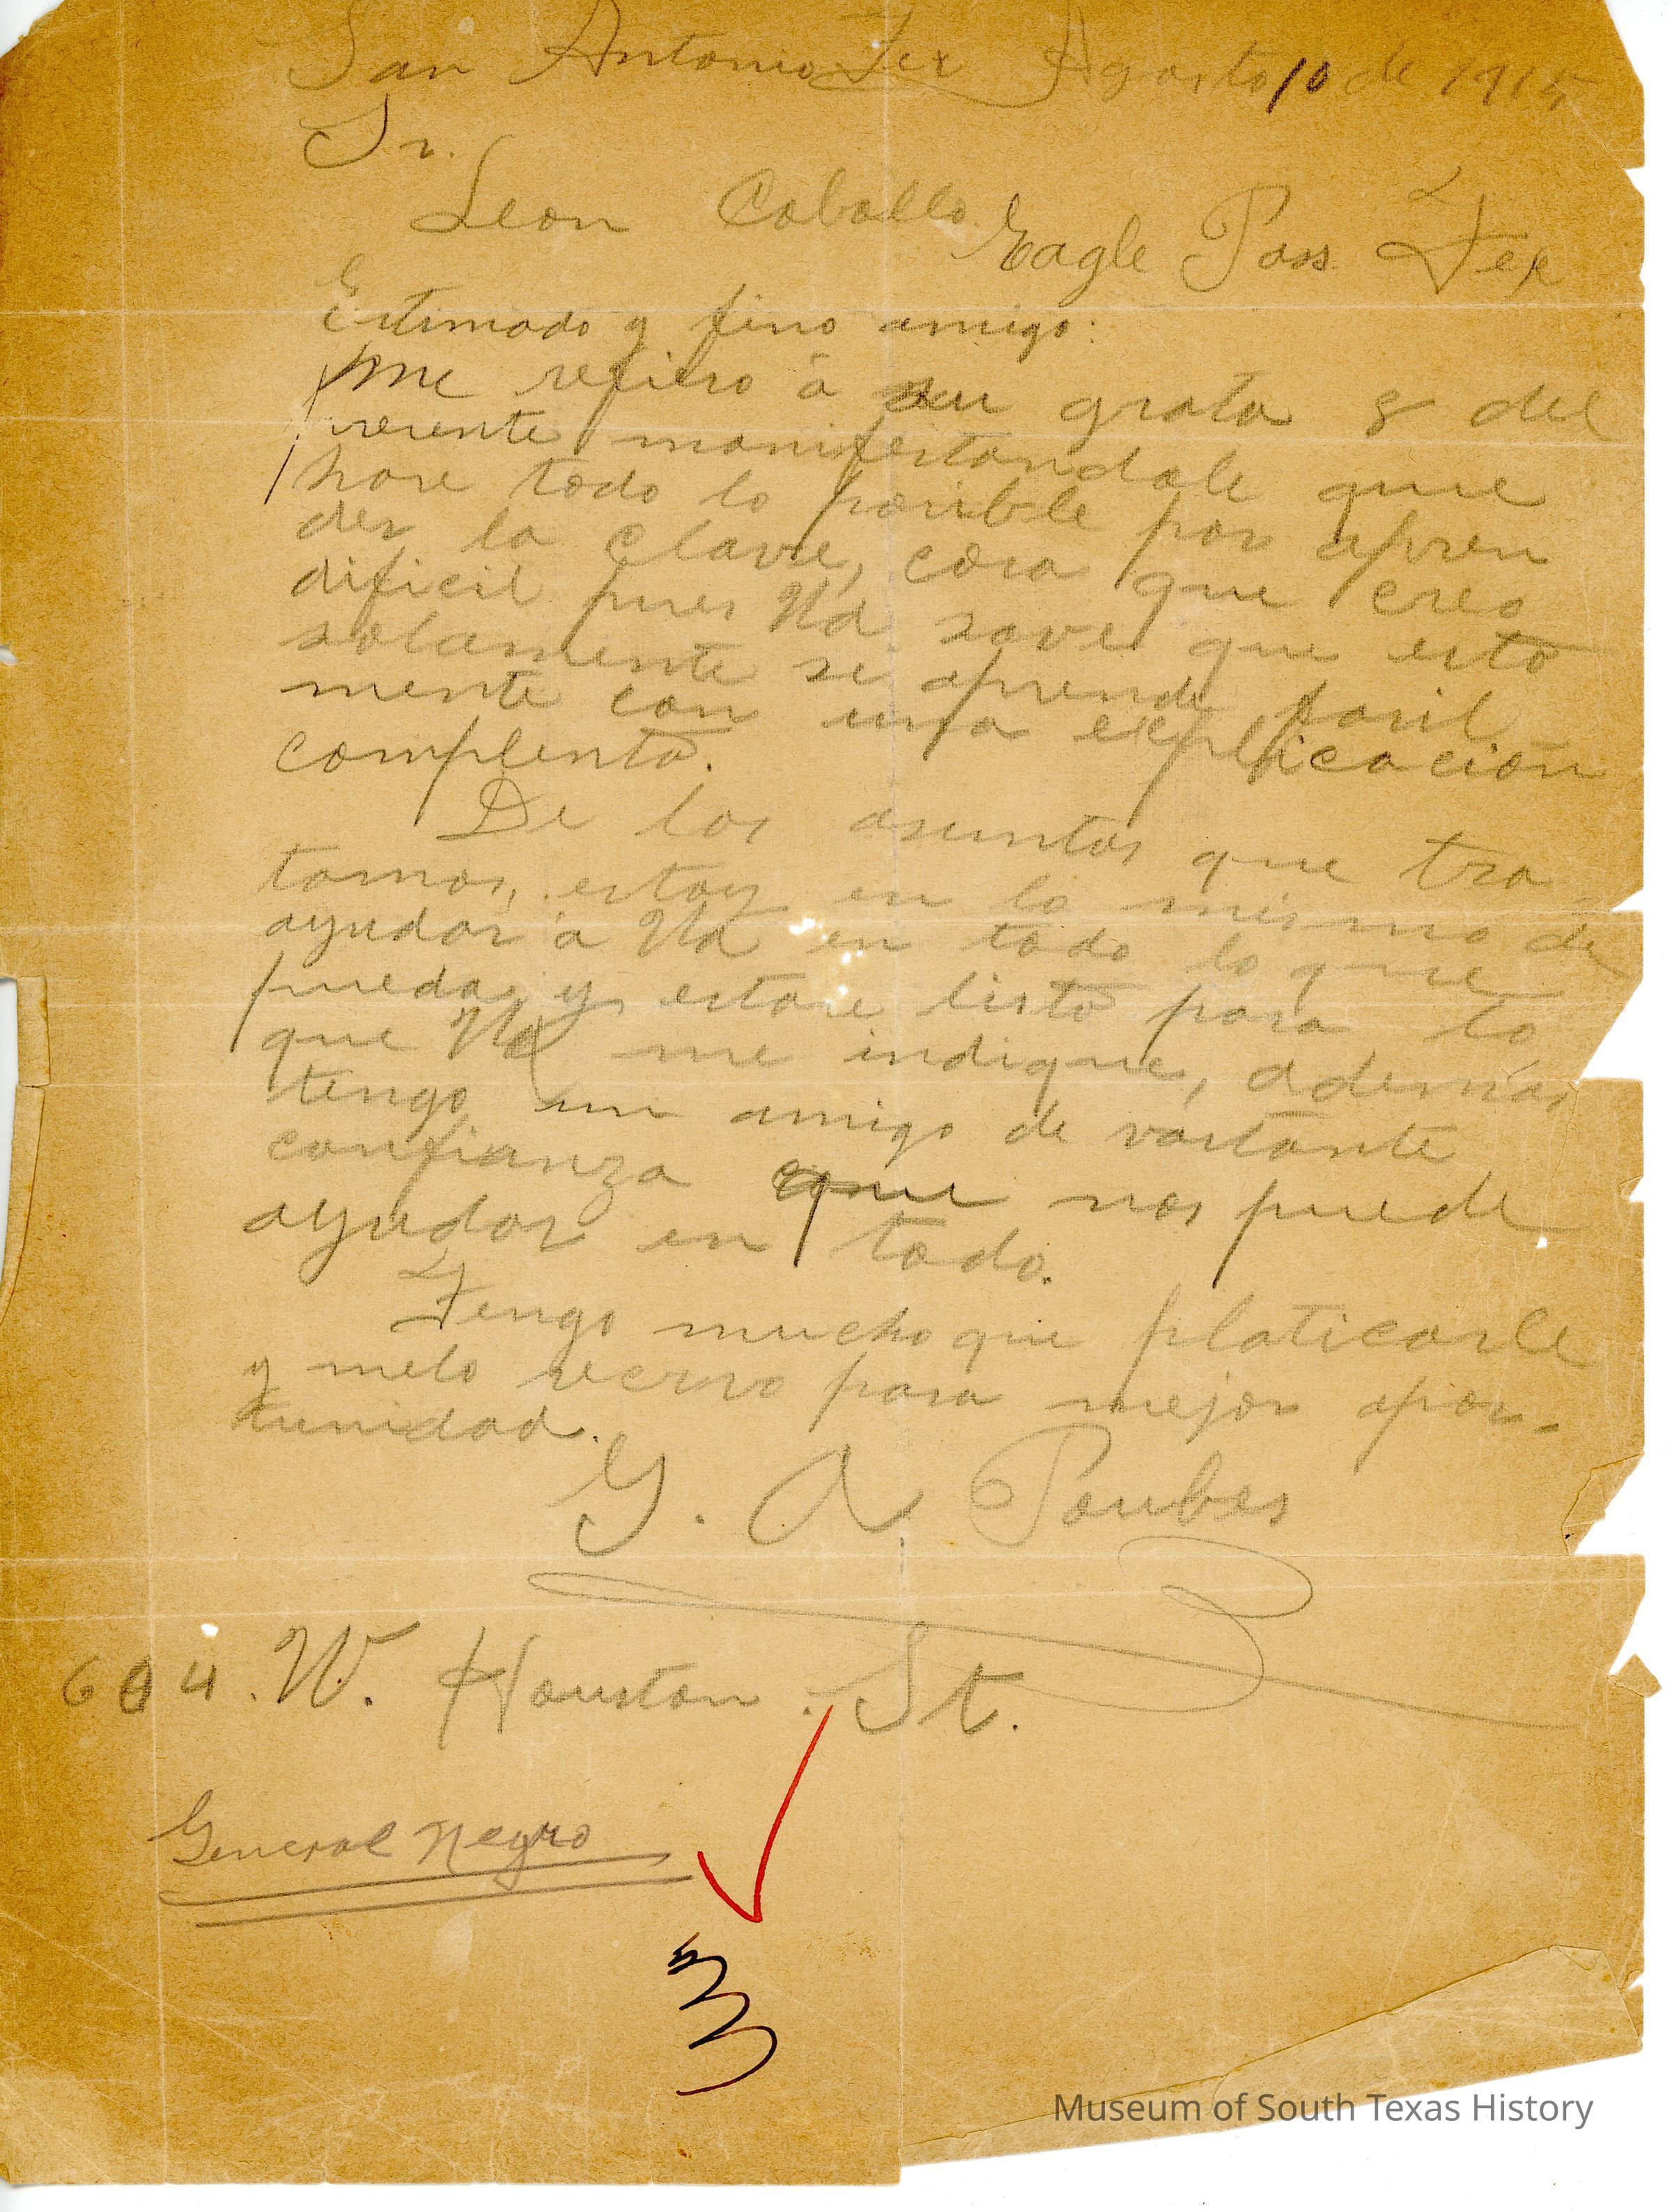 San Antonio Tex Agosto 10 de 1915
Sr.
Leon Caballo Eagle Pass Tex
Estimado y fino amigo:
Me refiero á su grata 8 del
presente manifestandole que
hare todo lo posible por apren
der la clave, cosa que creo
dificil pues Ud save que esto
solamente se aprende facil
mente con una explicación
complenta.
De los asuntos que tra
tamos, estoy en lo mismo de
ayudar á Ud en todo lo que
pueda, y estare listo para lo
que Ud me indique, además
tengo un amigo de vastante
confianza que nos puede
ayudar en todo.
Tengo mucho que platicarle
y melo recervo para mejor opor-
tunidad.
G. A.
604. W. Houston. St.
General Negro
3
Museum of South Texas History